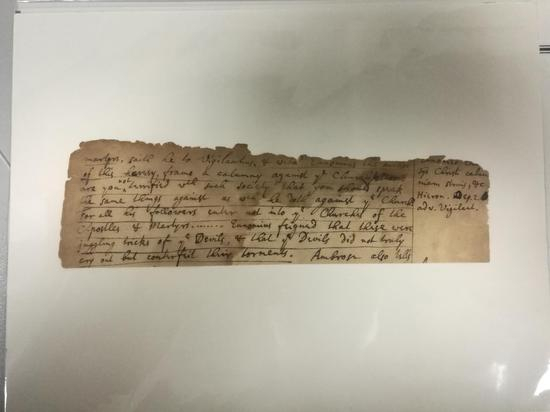 martyrs, saith he to Vigilantius, & with Eunomius the author
of this heresy, frame a calumny against ye Church
are you not terrified with such society that you should speak
the same things against us wch he doth against ye Church
For all his followers enter not into ye Churches of the
Apostles & Martyrs....... Eunomius feigned that these were
juggling tricks of ye Devils, & that ye Devils did not truly
cry out but conterfeit their torments. Ambrose also tells
Christi calum
niam struis, &c
Hieron.
adv. Vigilant.
A